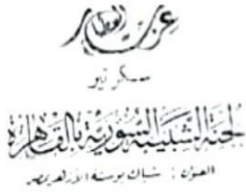 عزت العطار
سكرتير
لجنة الشبيبة السورية بالقاهرة
العنوان : شباك بوستة الأزهر بمصر